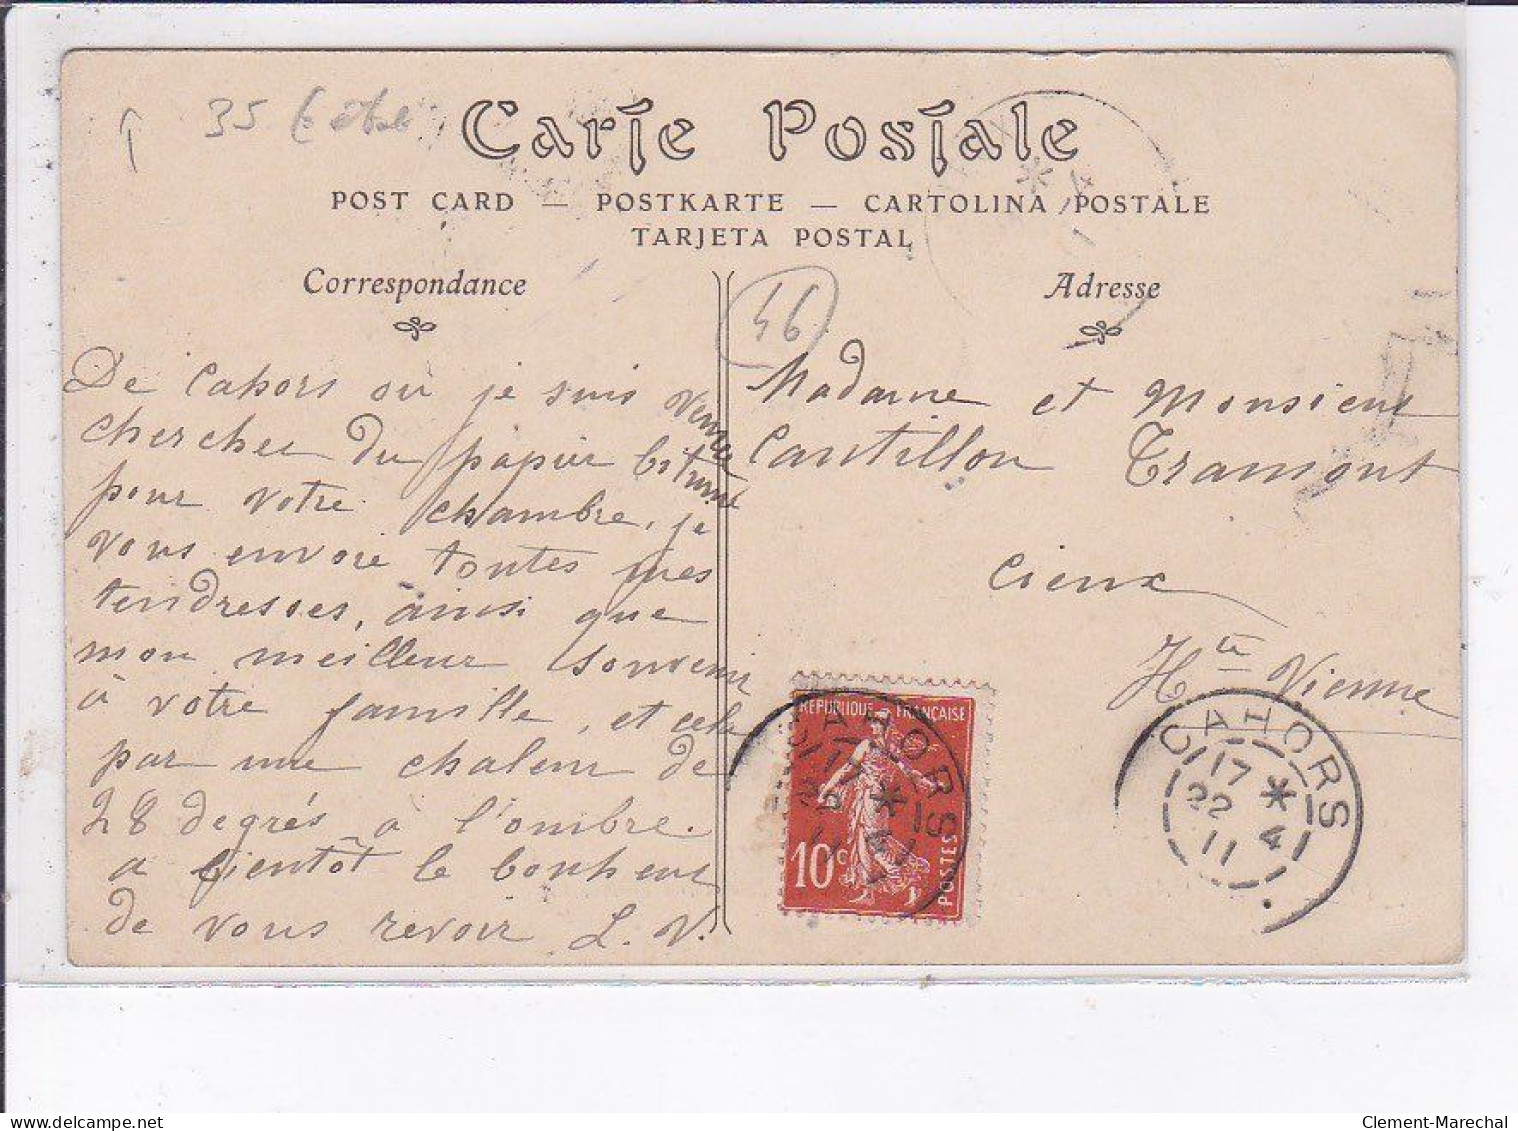 35
Carte Postale
POST CARD — POSTKARTE — CARTOLINA POSTALE
TARJETA POSTAL
Correspondance
Adresse
46
De Cahors où je suis venue
chercher du papier bitumé
pour votre chambre, je
vous envoie toutes mes
tendresses, ainsi que
mon meilleur souvenir
à votre famille, et cela
par une chaleur de
28 degrés à l'ombre.
a bientôt le bonheur
de vous revoir L. V.
Madame et Monsieur
Cantillon Tramont
Cieux
Hte Vienne
REPUBLIQUE FRANÇAISE
10c
POSTES
CAHORS
17 *
22 4
11
CAHORS
17 *
22 4
11
delcampe.net
Clement-Marechal